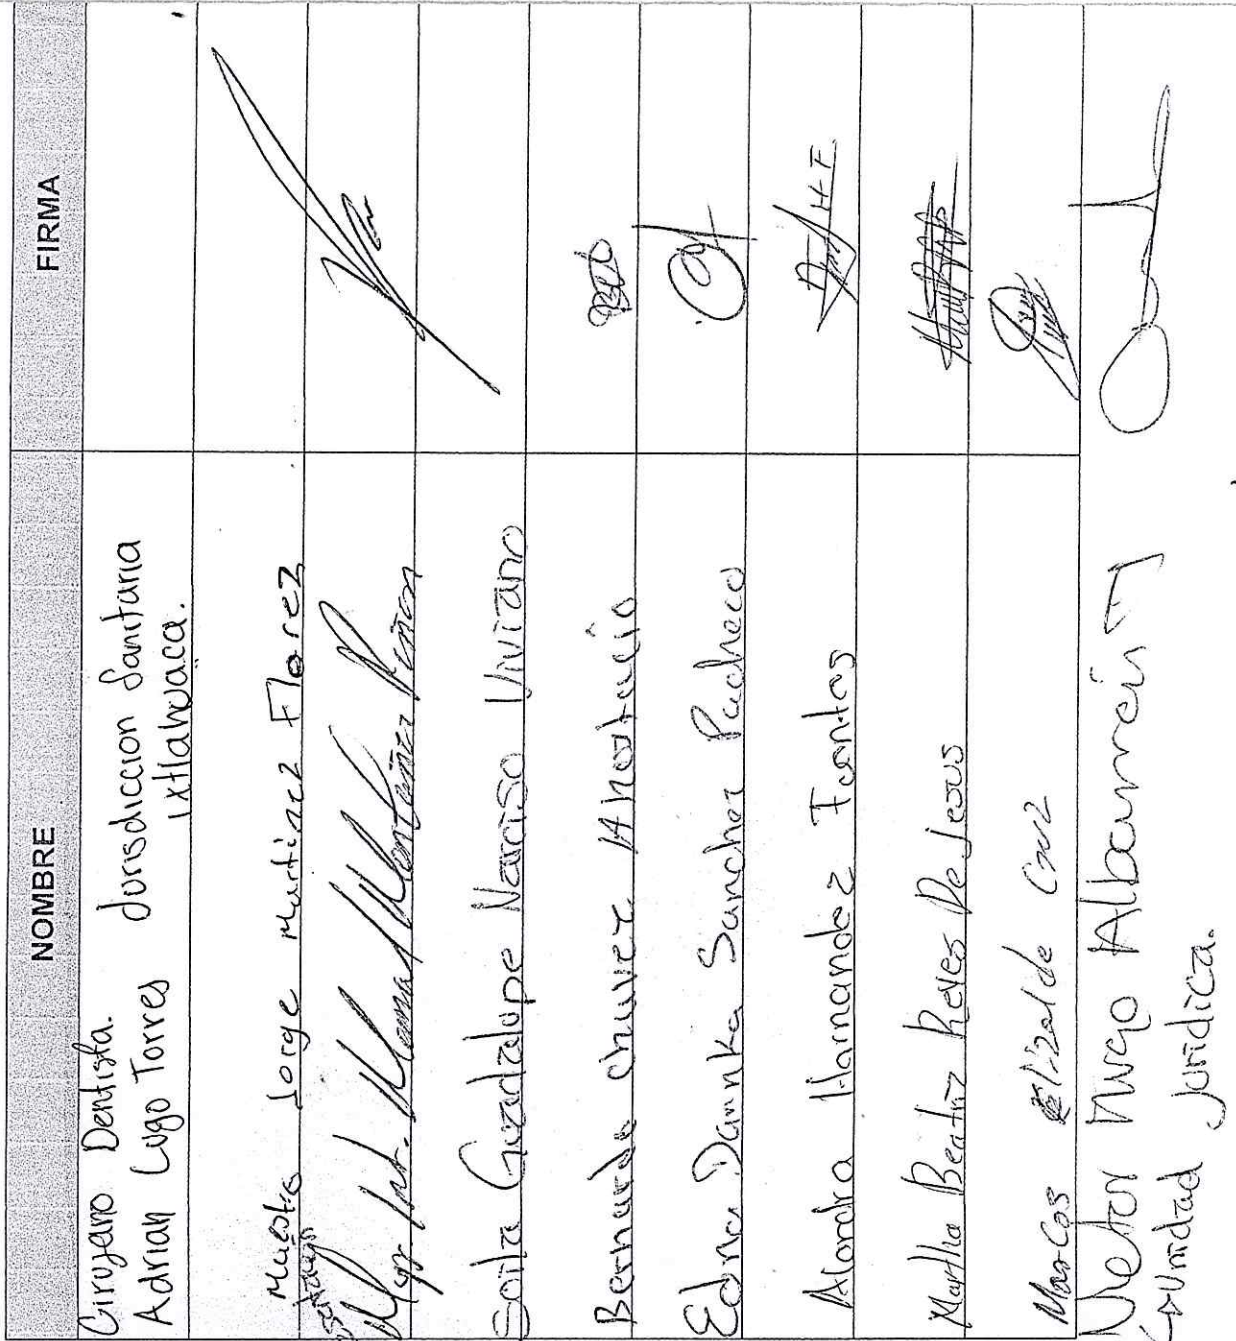 NOMBRE
FIRMA
Cirujano Dentista. Jurisdiccion Sanitaria
Adrian Lugo Torres Ixtlahuaca.
Maestro Jorge Martinez Florez
Soila Guadalupe Narciso Viviano
Bernardo Chavez Anastacio
Edna Danka Sanchez Pacheco
Alondra Hernandez Fuentes
HF
Martha Beatriz Reyes De Jesus
Marcos Elizalde Cruz
Hugo Albarrán
Unidad Jurídica.